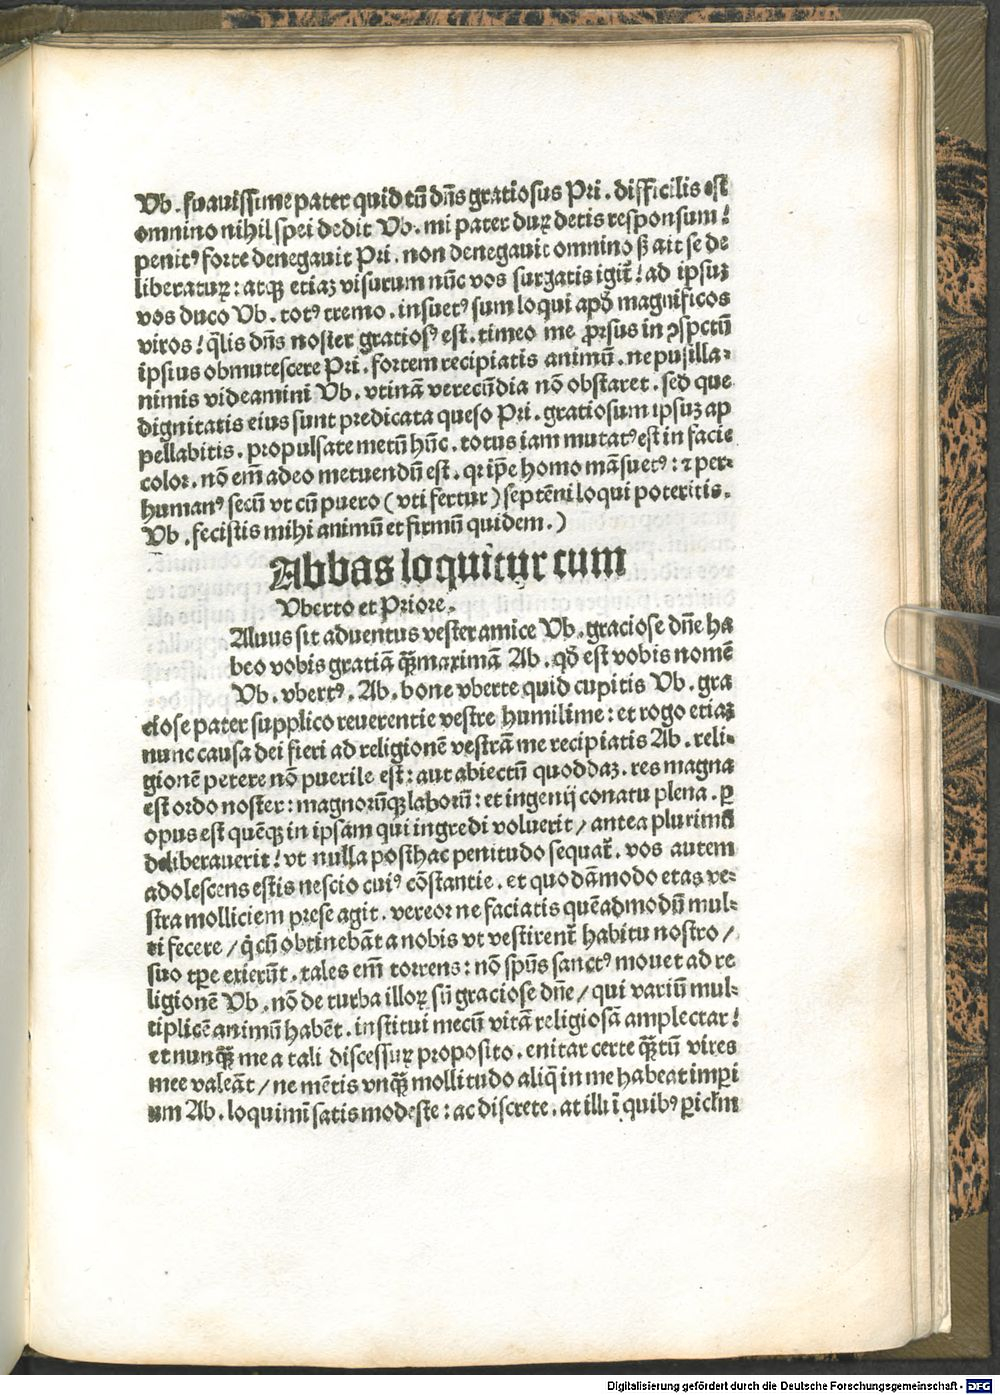 Vb. suauissime pater quid tū dn̄s gratiosus Pri. difficilis est
omnino nihil spei dedit Vb. mi pater duꝝ detis responsum!
penitꝰ forte denegauit Pri. non denegauit omnino ß ait se de
liberaturꝝ: atqꝫ etiaꝫ visurum nūc vos surgatis igit̄! ad ipsuꝫ
vos duco Vb. totꝰ tremo. insuetꝰ sum loqui apd̄ magnificos
viros! q̄lis dn̄s noster gratiosꝰ est. timeo me ꝓrsus in ꝯspctū
ipsius obmutescere Pri. fortem recipiatis animū. ne pusilla⸗
nimis videamini Vb. vtinā verecūdia nō obstaret. sed que
dignitatis eius sunt predicata queso Pri. gratiosum ipsuꝫ ap
pellabitis. propulsate metū hūc. totus iam mutatꝰ est in facie
color. nō em̄ adeo metuendū est. qr ip̄e homo māsuetꝰ: ⁊ per⸗
humanꝰ secū vt cū puero (vti fertur) septēni loqui poteritis.
Vb. fecistis mihi animū et firmū quidem.)
Abbas loquitur cum
Vberto et Priore.
Aluus sit aduentus vester amice Vb. graciose dn̄e ha
beo vobis gratiā qꝫ̄maximā Ab. qd̄ est vobis nomē
Vb. vbertꝰ. Ab. bone vberte quid cupitis Vb. gra
ciose pater supplico reuerentie vestre humilime: et rogo etiaꝫ
nunc causa dei fieri ad religionē vestrā me recipiatis Ab. reli⸗
gionē petere nō puerile est: aut abiectū quoddaꝫ. res magna
est ordo noster: magnorūqꝫ laborū: et ingenij conatu plena. ꝑ
opus est quēqꝫ in ipsam qui ingredi voluerit / antea plurimū
deliberauerit! vt nulla posthac penitudo sequat̄. vos autem
adolescens estis nescio cuiꝰ cōstantie. et quodāmodo etas ve⸗
stra molliciem prese agit. vereor ne faciatis quēadmodū mul⸗
ti fecere / q̇ cū obtinebāt a nobis vt vestirent̄ habitu nostro /
suo tꝑe exierūt. tales em̄ torrens: nō sp̄ūs sanctꝰ mouet ad re
ligionē Vb. nō de turba illoꝝ sū graciose dn̄e / qui variū mul⸗
tiplicē animū habēt. institui mecū vitā religiosā amplectar!
et nunqꝫ̄ me a tali discessuꝝ proposito. enitar certe qꝫ̄tū vires
mee valeāt / ne mētis vnqꝫ̄ mollitudo aliq̄ in me habeat imperi
um Ab. loquimī satis modeste: ac discrete. at illi ī quibꝰ ꝑiclm̄
Digitalisierung gefördert durch die Deutsche Forschungsgemeinschaft - DFG